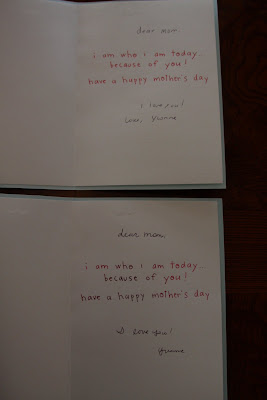 dear mom
i am who i am today...
because of you!
have a happy mother's day
I love you!
Love, Yvonne
dear mom,
i am who i am today...
because of you!
have a happy mother's day
I love you!
Yvonne